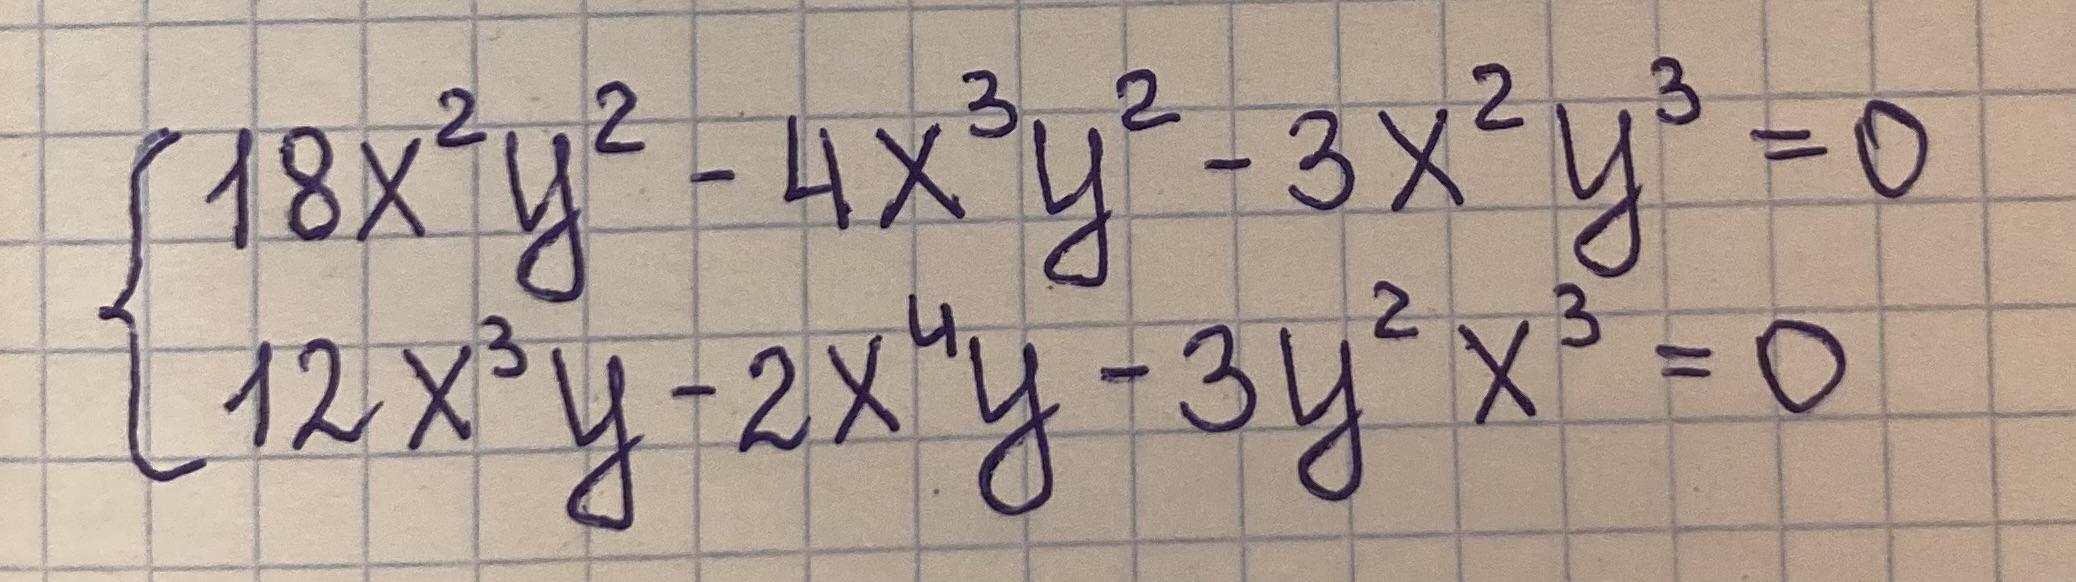 18x²y² - 4x³y² - 3x²y³ = 0
12x³y - 2x⁴y - 3y²x³ = 0